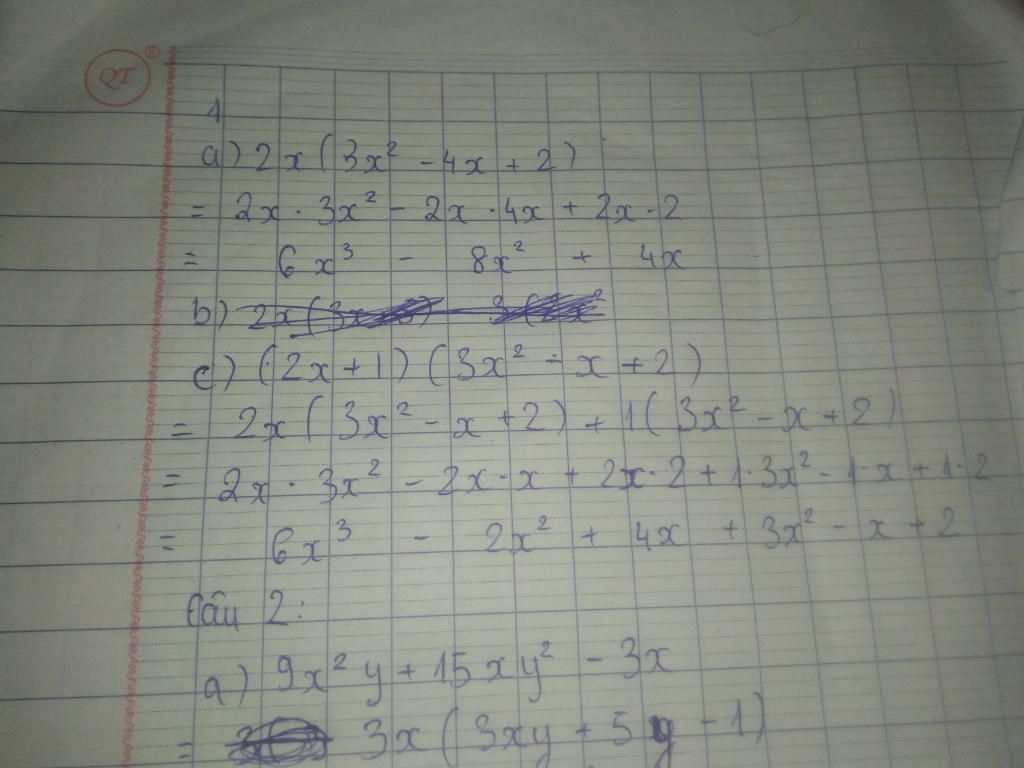 QT ®
1
a) 2x(3x² - 4x + 2)
= 2x · 3x² - 2x · 4x + 2x · 2
= 6x³ - 8x² + 4x
b)
c) (2x + 1)(3x² - x + 2)
= 2x(3x² - x + 2) + 1(3x² - x + 2)
= 2x · 3x² - 2x · x + 2x · 2 + 1 · 3x² - 1 · x + 1 · 2
= 6x³ - 2x² + 4x + 3x² - x + 2
Câu 2:
a) 9x²y + 15xy² - 3x
= 3x(3xy + 5y - 1)